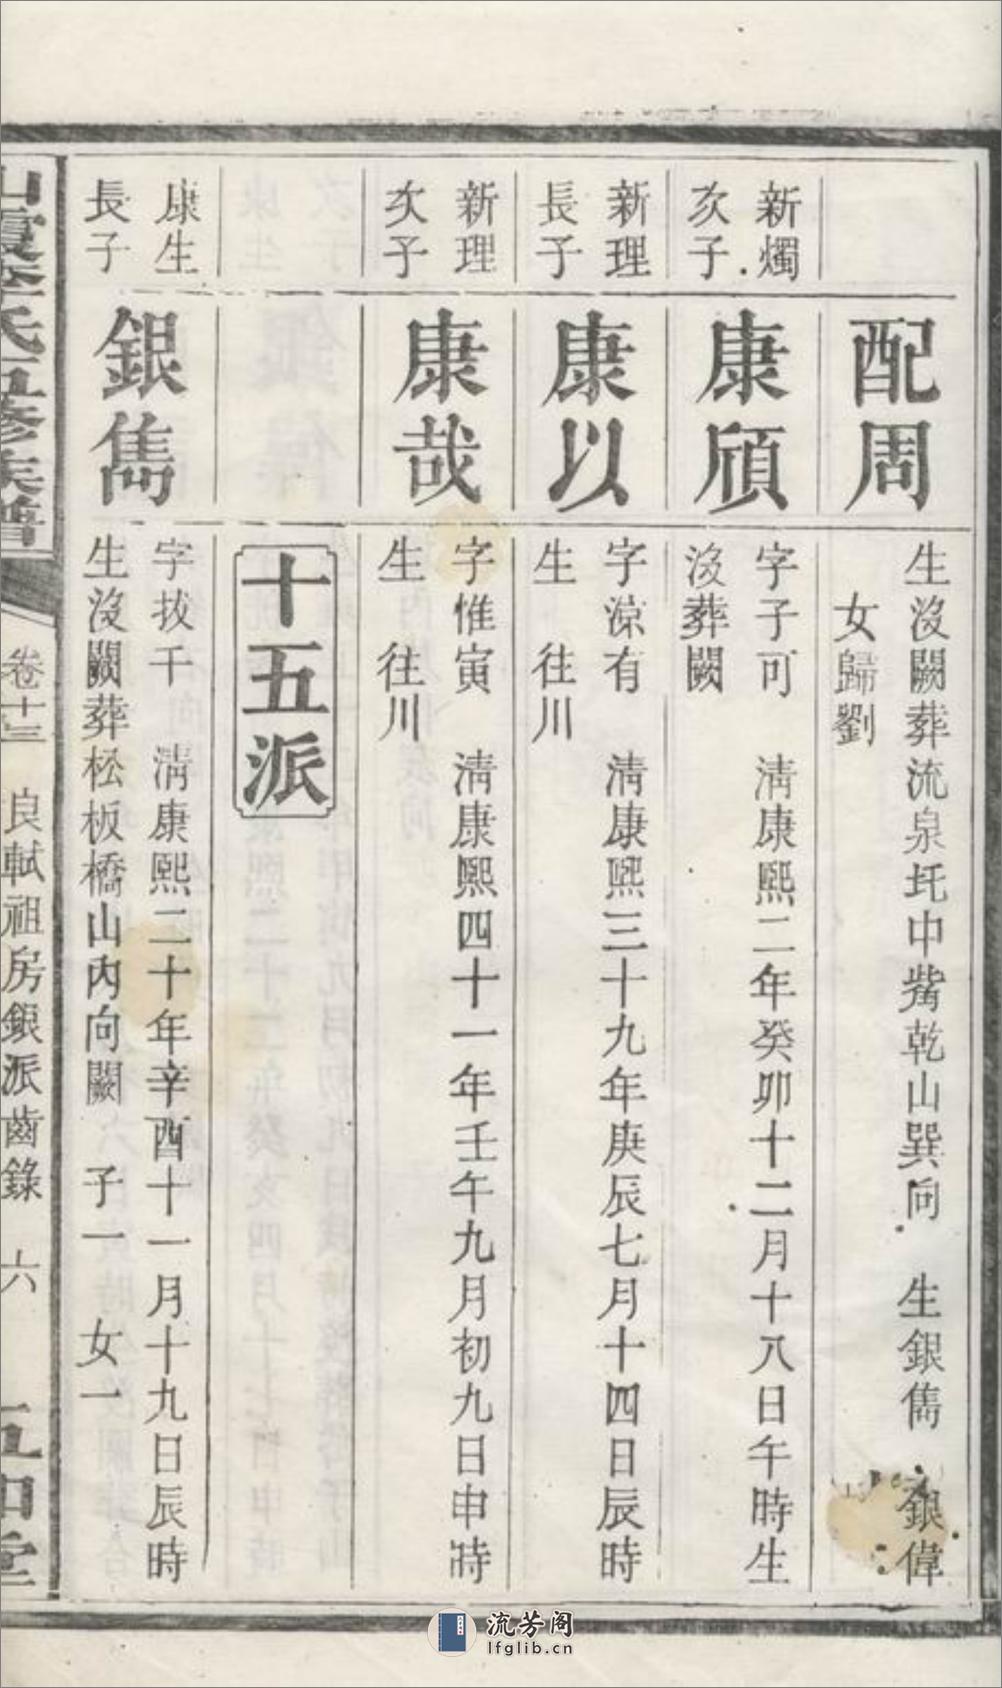 配周
生沒闕葬流泉圫中嘴乾山巽向 生銀儁 銀偉
女歸劉
新燭
次子
康頎
字子可 清康熙二年癸卯十二月十八日午時生
沒葬闕
新理
長子
康以
字諒有 清康熙三十九年庚辰七月十四日辰時
生 往川
新理
次子
康哉
字惟寅 清康熙四十一年壬午九月初九日申時
生 往川
十五派
康生
長子
銀儁
字拔千 清康熙二十年辛酉十一月十九日辰時
生沒闕葬松板橋山內向闕 子一 女一
氏五修族譜
卷十三 良軾祖房銀派齒錄 六 五和堂
流芳阁
lfglib.cn